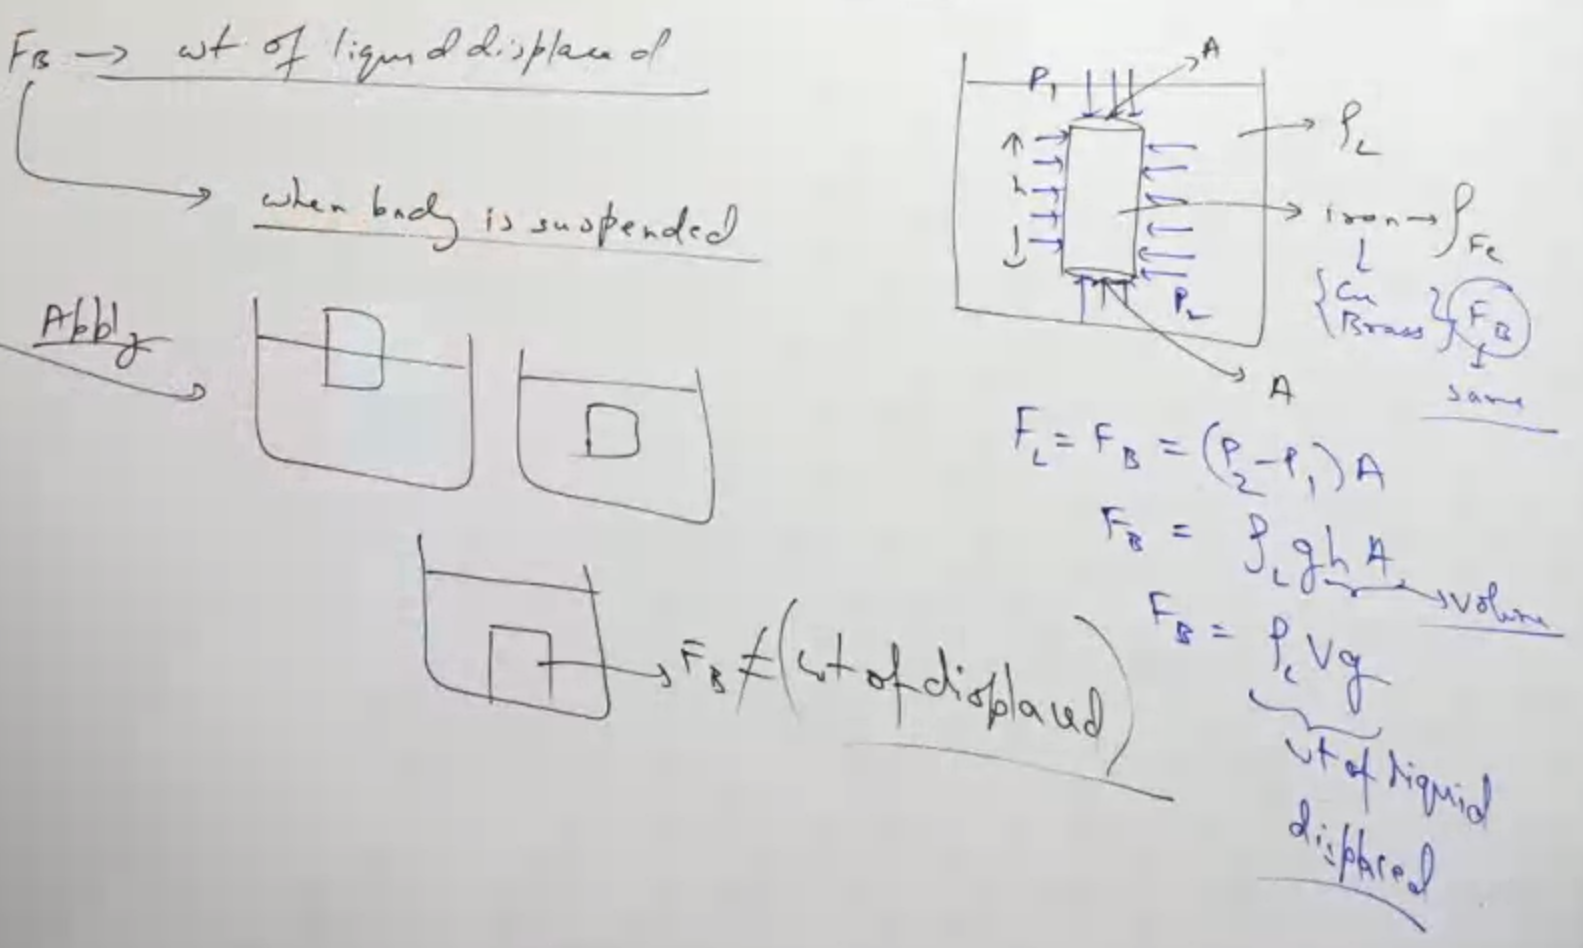 F_B → wt of liquid displaced
when body is suspended
Apply
F_B ≠ (wt of displaced)
P_1
A
h
ρ_L
iron → ρ_Fe
{Cu
Brass} F_B
same
P_2
A
F_L = F_B = (P_2 - P_1) A
F_B = ρ_L g h A → volume
F_B = ρ_L V g
wt of liquid
displaced